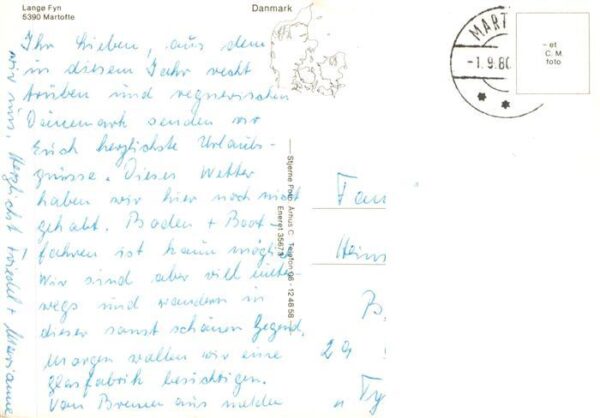 Lange Fyn
5390 Martofte
Danmark
MART
-1.9.80
- et
C. M.
foto
Ihr Lieben, aus dem
in diesem Jahr recht
trüben und regnerischen
Dänemark senden wir
Euch herzlichste Urlaubs-
grüsse. Dieses Wetter
haben wir hier noch nicht
gehabt. Baden + Boot-
fahren ist kaum mögli
Wir sind aber viel unter-
wegs und wandern in
dieser sonst schönen Gegend,
Morgen wollen wir eine
Glasfabrik besichtigen.
Von Bremen aus melden
wir uns. Herzlichst Friedel + Marianne
Stjerne Foto. Århus C. Telefon 06 - 12 48 58
Eneret 35679
Fam
Heins
B
29
Ty